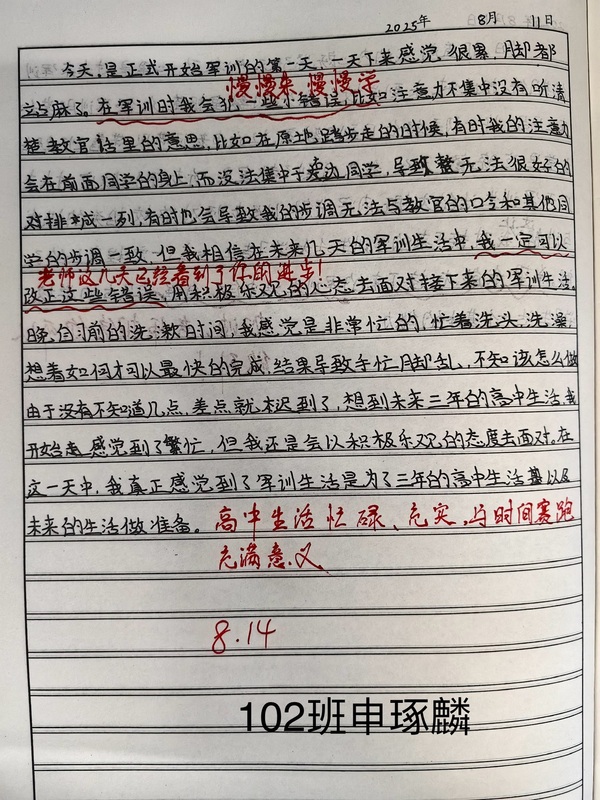 2025年 8月 11日
今天,是正式开始军训的第一天,一天下来感觉很累,脚都
慢慢来,慢慢学
站麻了。在军训时我会犯一些小错误,比如注意力不集中没有听清
楚教官话里的意思,比如在原地踏步走的时候,有时我的注意力
会在前面同学的身上,而没法集中于旁边同学,导致整无法很好的
对排成一列,有时也会导致我的步调无法与教官的口令和其他同
学的步调一致。但我相信在未来几天的军训生活中,我一定可以
老师这几天已经看到了你的进步!
改正这些错误,用积极乐观的心态去面对接下来的军训生活。
晚自习前的洗漱时间,我感觉是非常忙的,忙着洗头、洗澡,
想着如何才可以最快的完成,结果导致手忙脚乱,不知该怎么做
由于没有不知道几点,差点就迟到了,想到未来三年的高中生活,我
开始感觉到了繁忙,但我还是会以积极乐观的态度去面对。在
这一天中,我真正感觉到了军训生活是为了三年的高中生活以及
未来的生活做准备。高中生活忙碌、充实,与时间赛跑
充满意义
8.14
102班申琢麟